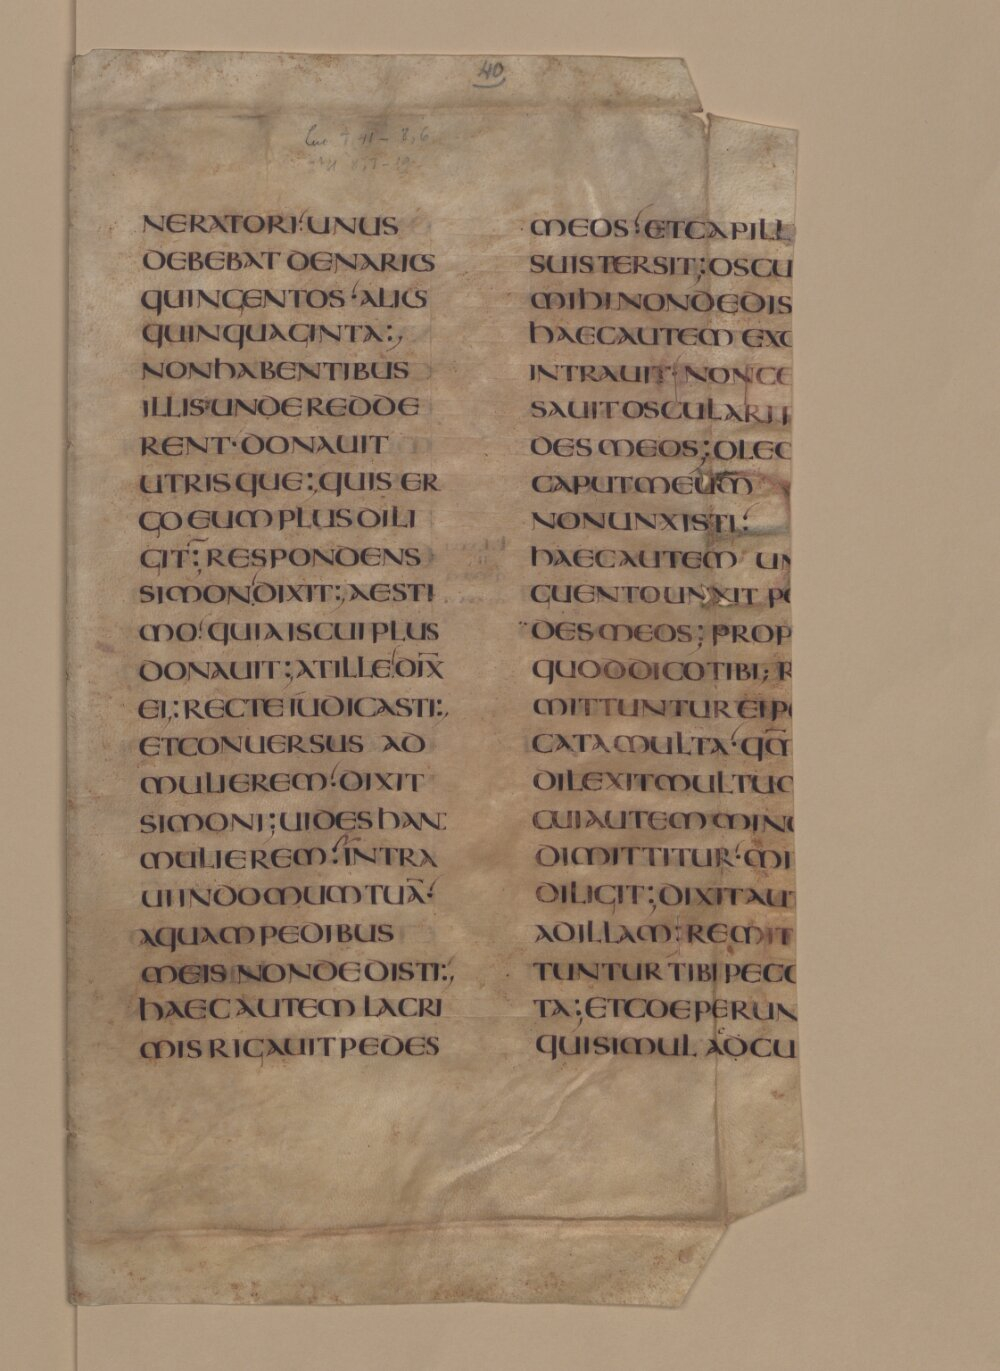 40
NERATORI: UNUS
DEBEBAT DENARIOS
QUINGENTOS· ALIUS
QUINQUAGINTA:,
NON hABENTIBUS
ILLIS· UNDE REDDE
RENT· DONAUIT
UTRISQUE:, QUIS ER
GO EUM PLUS DILI
GIT:, RESPONDENS
SIMON DIXIT:, AESTI
MO· QUIA IS CUI PLUS
DONAUIT:, AT ILLE DIX̄
EI:, RECTE IUDICASTI:,
ET CONUERSUS AD
MULIEREM· DIXIT
SIMONI:, UIDES hANC
MULIEREM: INTRA
UI IN DOMUM TUĀ·
AQUAM PEDIBUS
MEIS NON DEDISTI:,
hAEC AUTEM LACRI
MIS RIGAUIT PEDES
MEOS· ET CAPILL
SUIS TERSIT:, OSCU
MIhI NON DEDIS
hAEC AUTEM EX
INTRAUIT· NON CE
SAUIT OSCULARI
DES MEOS:, OLE
CAPUT MEUM
NON UNXISTI:
hAEC AUTEM UN
GUENTO UNXIT PE
DES MEOS:, PROP
QUOD DICO TIBI:, R
MITTUNTUR EI PE
CATA MULTA· QM̄
DILEXIT MULTU
CUI AUTEM MIN
DIMITTITUR· MI
DILIGIT:, DIXIT AU
AD ILLAM: REMIT
TUNTUR TIBI PECC
TA:, ET COEPERUN
QUI SIMUL ADCU